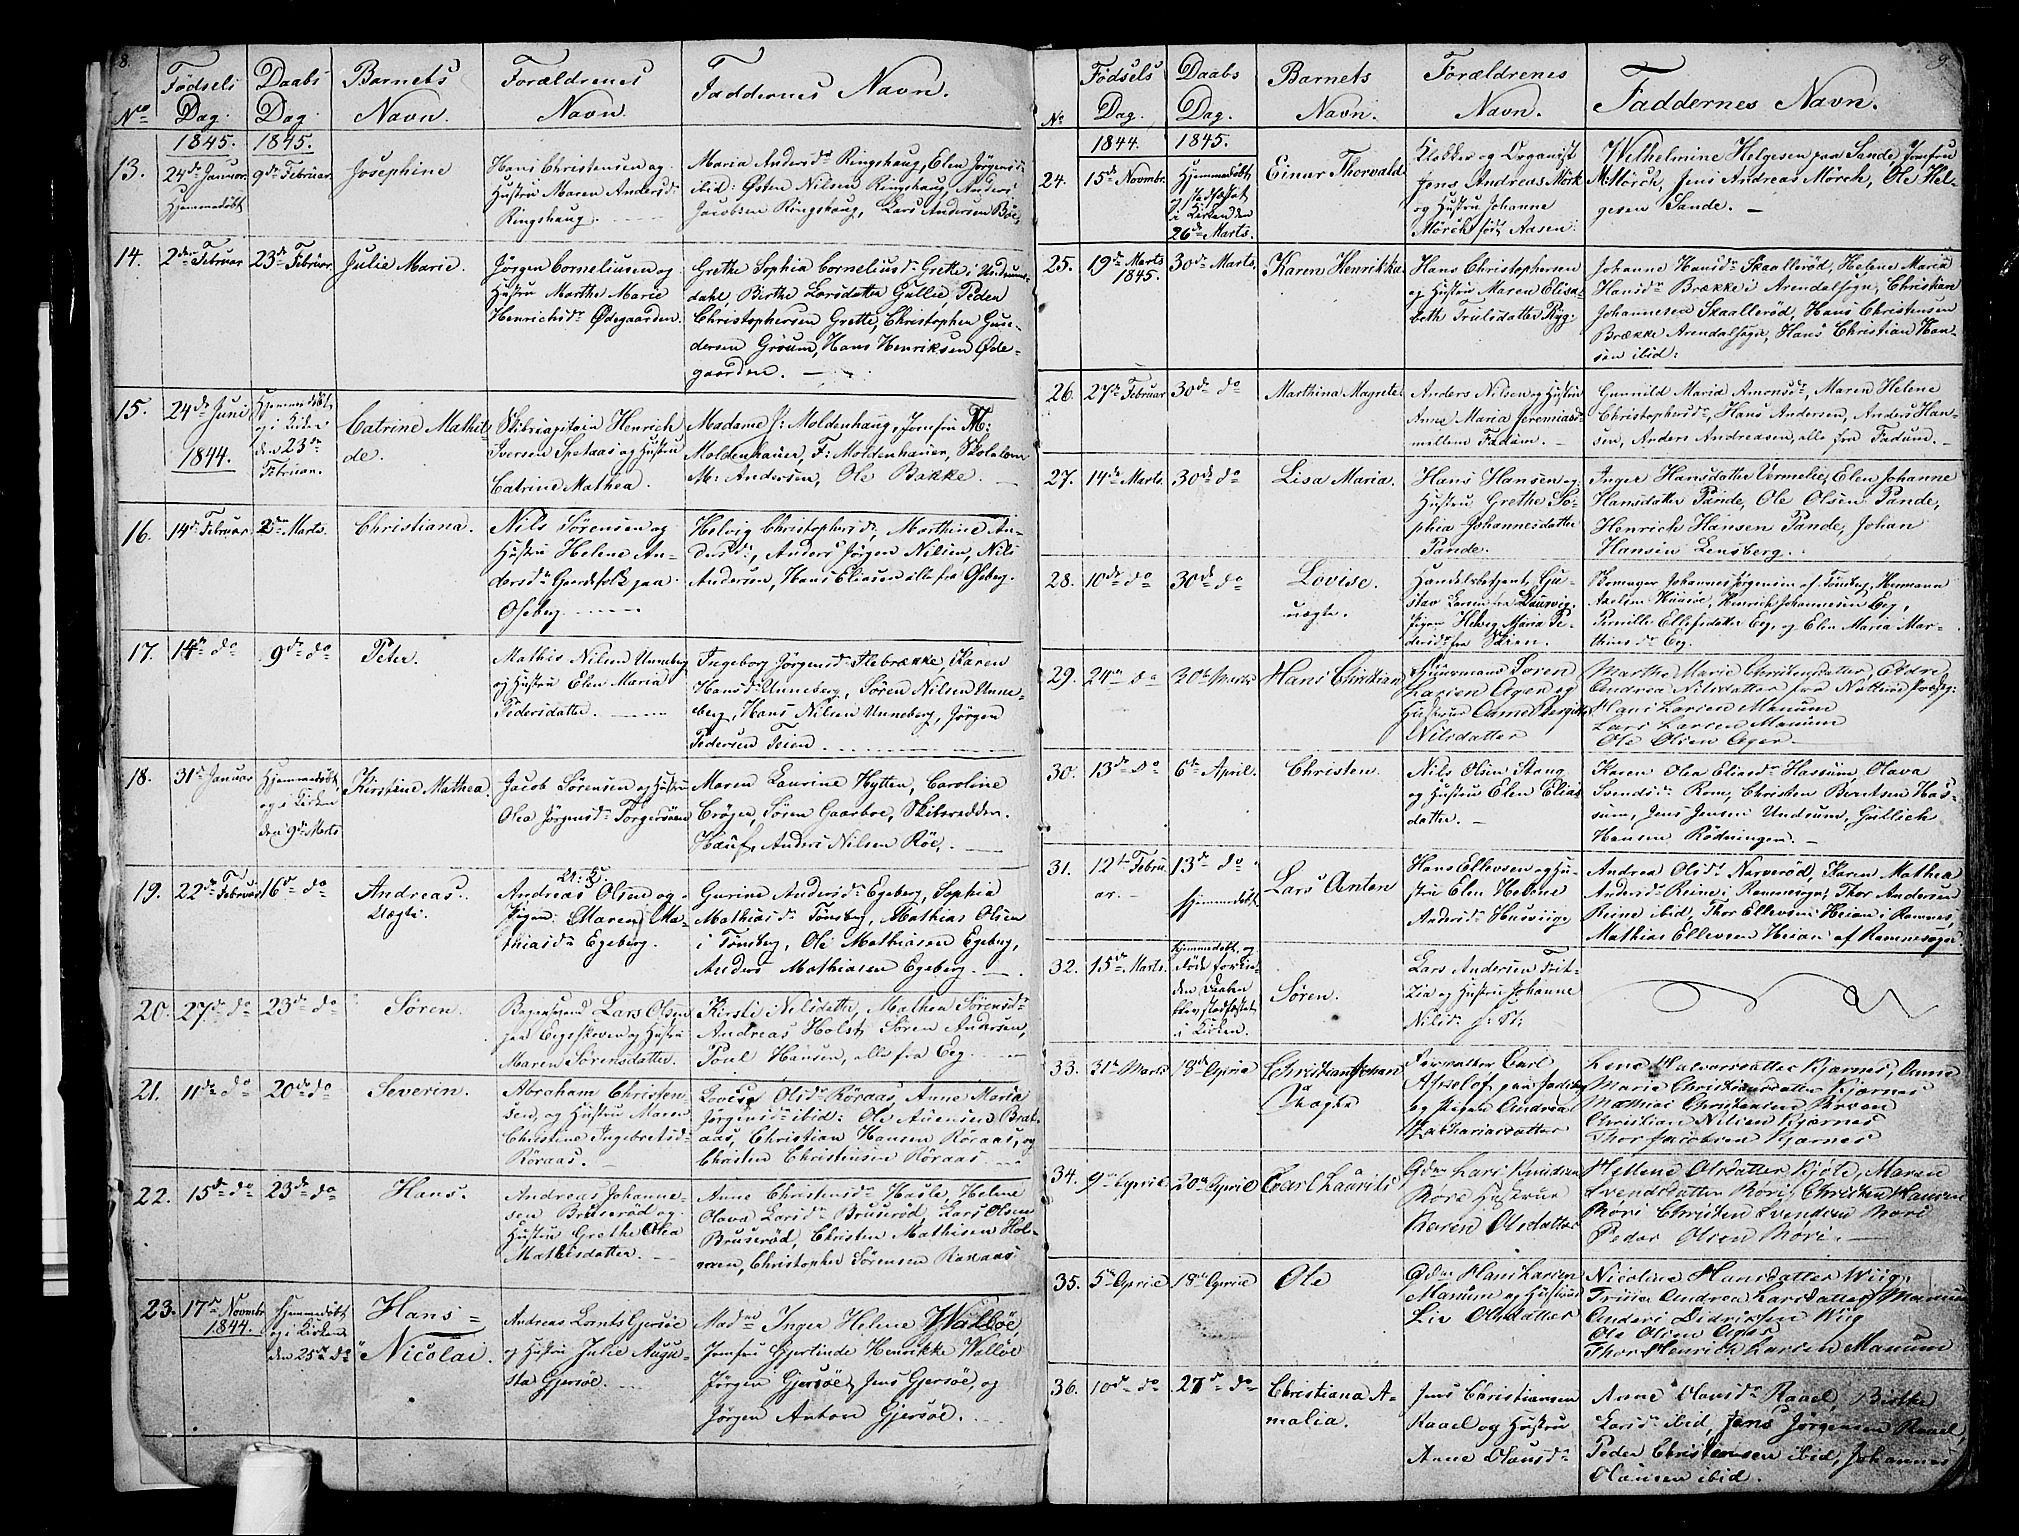 8.
No
Fødsels
Dag.
Daabs
Dag.
Barnets
Navn.
Forældrenes
Navn.
Faddernes Navn.
1845.
1845.
13.
24de Januar.
Hjemmedøbt
9de Februar.
Josephine
Hans Christensen og
Hustru Maren Andersdr
Ringshaug.
Maria Andersdr Ringshaug, Elen Jørgensdr
ibid: Østen Nilsen Ringshaug, Anders
Jacobsen Ringshaug, Lars Andersen Bøe
14.
2den Februar
23de Februar.
Julie Marie.
Jörgen Corneliusen og
Hustru Marthe Marie
Henrichsdr Ødegaarden.
Grethe Sophia Corneliusdr Grette i Undrums-
dahl, Birthe Larsdatter Gullie, Peder
Christophersen Grette, Christopher Gun-
dersen Groum, Hans Henriksen Øde-
gaarden.
15.
24de Juni
1844.
Hjemmedøbt
og i Kirken
den 23de
Februar.
Catrine Mathil-
de.
Skibscapitain Henrich
Iversen Spetaas og Hustru
Catrine Mathea.
Madame C: Moldenhaug, Jomfru M:
Moldenhauer, F: Moldenhauer, Skolelærer
M: Andersen, Ole Bakke.
16.
14de Februar
2den Marts.
Christiana.
Nils Sörensen og
Hustru Helene An-
dersdr Gaardfolk paa
Oseberg.
Helvig Christophersdr, Marthine An-
dersdr, Anders Jörgen Nilsen, Nils
Andersen, Hans Eliasen alle fra Oseberg.
17.
14de do
9de do
Peter.
Mathis Nilsen Unneberg
og Hustru Elen Maria
Pedersdatter.
Ingeborg Jörgensdr Flebrække, Karen
Hansdr Unneberg, Sören Nilsen Unne-
berg, Hans Nilsen Unneberg, Jörgen
Pedersen Teien
18.
31te Januar
Hjemmedøbt,
og i Kirken
den 9de Marts
Kirstine Mathea.
Jacob Sörensen og Hustru
Olea Jörgensdr Torgersøen
Maren Laurine Hytten, Caroline
Cröger, Sören Gaarboe, Skibsredder
Hauf, Anders Nilsen Röe,
19.
22de Februar
16de do
Andreas.
Uægte.
Andreas Olsen og
Pigen Maren Ma-
thiasdr Egeberg.
Gurine Andersdr Egeberg, Sophia
Mathiasdr Tønsberg, Mathias Olsen
i Tønsberg, Ole Mathiasen Egeberg,
Anders Mathiasen Egeberg.
20.
27de do
23de do
Søren.
Lars Olsen
paa Eegskoven og Hustru
Maren Sørensdatter.
Kirsti Nilsdatter, Mathea Sørensdr
Andreas Holst, Søren Andersen,
Poul Hansen, alle fra Eeg.
21.
11de do
20de do
Severin.
Abraham Christen-
sen, og Hustru Maren
Christine Ingebretsdr
Röraas.
Lovise Olsdr Röraas, Anne Maria
Jörgensdr ibid: Ole Auensen Brat-
aas, Christian Hansen Röraas, og
Christen Christensen Röraas
22.
15de do
23de do
Hans.
Andreas Johanne-
sen Bruserød og
Hustru Grethe Olea
Mathisdatter.
Anne Christensdr Hasle, Helene
Olava Larsdr Bruserød, Lars Olsen
Bruserød, Christen Mathisen Hol-
men, Christopher Sörensen Raraas
23.
17de Novmbr
1844.
Hjemmedøbt
og i Kirken
den 25de do
Hans
Nicolai.
Andreas Lants Gjersöe
og Hustru Julie Augu-
sta Gjersöe.
Madme Inger Helene Wallöe,
Jomfru Gjertinde Henrikke Wallöe
Jörgen Gjersöe, Jens Gjersöe, og
Jörgen Anton Gjersöe.
9.
No
Fødsels
Dag.
Daabs
Dag.
Barnets
Navn.
Forældrenes
Navn.
Faddernes Navn.
1844.
1845.
24.
15de Novmbr.
Hjemmedøbt
og stadfæstet
i Kirken den
26de Marts.
Einar Thorvald
Klokker og Organist
Jens Andreas Mörk
og Hustru Johanne
Mörch föd Aasen.
Wilhelmine Helgesen paa Sande, Jomfru
M. Mörch, Jens Andreas Mörch, Ole Hel-
gesen Sande.
25.
19de Marts
1845.
30de Marts.
Karen Henrikka
Hans Christophersen
og Hustru Maren Elisa-
beth Trulsdatter Ryg:
Johanne Hansdr Skaallerød, Helene Maria
Hansdr Brække i Arendalsogn, Christian
Johannesen Skaallerød, Hans Christensen
Brække Arendalsogn, Hans Christian Han-
sen ibid:
26.
27de Februar
30de do
Marthina Magrete.
Anders Nilsen og Hustru
Anne Maria Jeremiasdr
mellem Fadum.
Gunnild Maria Amonsdr, Maren Helene
Christophersdr, Hans Andersen, Anders Han-
sen, Anders Andreasen, alle fra Fadum.
27.
14de Marts.
30de do
Lisa Maria.
Hans Hansen og
Hustru Grethe So-
phia Johannesdatter
Pande.
Inger Hansdatter Vermelie, Elen Johanne
Hansdatter Pande, Ole Olsen Pande,
Henrich Hansen Pande, Johan
Hansen Lensberg.
28.
10de do
30de do
Lovise.
uægte.
Handelsbetjent, Gu-
stav Larsen fra Laurvig.
Pigen Helvig Maria Pe-
dersdr fra Skien.
Bomager Johannes Jörgensen af Tønsberg, Hermann
Axelsen Husöe, Henrich Johannesen Eeg,
Pernille Ellefsdatter Eeg, og Elen Maria Mar-
thinsdr Eeg.
29.
24de do
30te Marts
Hans Christian
Huusmand Sören
Larsen Ager og
Hustrue Anne Bergitte
Nilsdatter
Marthe Marie Christensdatter,
Andrea Nilsdatter fra Nötterøe Præstg:
Hans Larsen Manum
Lars Larsen Manum
Ole Olsen Ager
30.
13de do
6te April.
Christen.
Nils Olsen Stang
og Hustru Elen Elias-
datter.
Karen Olea Eliasdr Hassum, Olava
Svendsdr Rom, Christen Berntsen Has-
sum, Jens Jensen Undrum, Gutlich
Hansen Rödningen.
31.
12te Febru
ar.
13de do
Hjemmedøbt
Lars Anten
Hans Ellevsen og Hu-
stru Elen Helene
Andersdr Husviige
Andrea Olsdr Narverød, Karen Mathea
Andersdr Reine i Ramnesogn, Thor Andersen
Reine ibid, Thor Ellevsen Heian i Ramnes,
Mathias Ellevsen Heian af Ramnesogn
32.
15de Marts.
Hjemmedøbt, og
døde förend
den Daaben
blev stadfæstet
i Kirken.
Søren.
Lars Andersen Frit-
zia og Hustru Johanne
Nilsdr
33.
31te Marts
18de Aprile
Christian Johan
Uægte
Carl
og Pigen Andrea
Zachariasdatter
Lene Halvorsdatter Kjærnes, Anne
Marie Christiansdatter Kjærnes
Mathias Christensen Berven
Christian Nilsen Kjærnes
Thor Jacobsen Kjærnes
34.
9de Aprile
20de Aprile
Carl Laurits
Gdm Lars Knudsen
Röri Hustrue
Karen Olsdatter
Hellene Olsdatter Kjöle, Maren
Svendsdatter Röri, Christen Hansen
Röri Christen Svendsen Röri
Peder Olsen Röri.
35.
5te Aprile
18de Aprile
Ole
Gdm Hans Larsen
Manum og Hustrue
Liv Olsdatter
Nicoline Hansdatter Wiig,
Trina Andrea Larsdatter Manum
Anders Didriksen Wiig
Ole Olsen Ager
Thor Henrich Larsen Manum
36.
10de do
27de do
Christiana A-
malia.
Jens Christiansen
Raael og Hustru
Anne Olausdr
Anne Hansdr Raael, Birthe
Larsdr ibid, Jens Jörgensen Raael,
Peder Christensen ibid, Johannes
Clausen ibid.